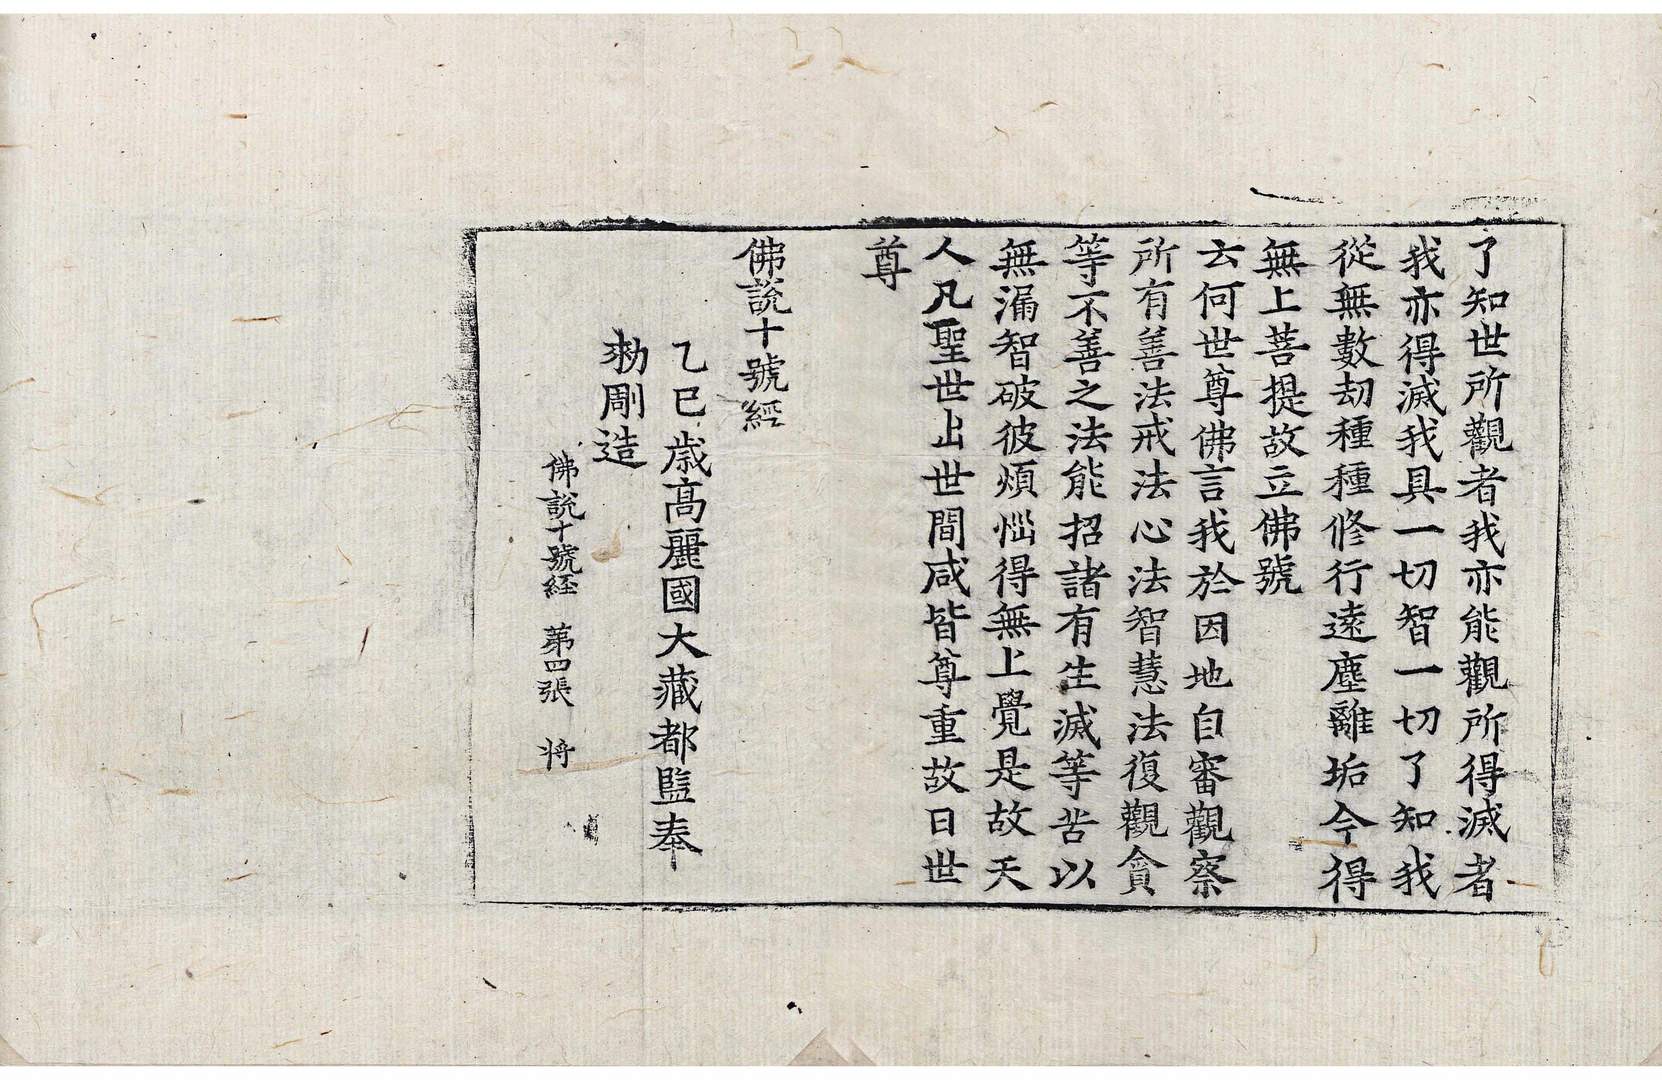 了知世所觀者我亦能觀所得滅者
我亦得滅我具一切智一切了知我
從無數劫種種修行遠塵離垢今得
無上菩提故立佛號
云何世尊佛言我於因地自審觀察
所有善法戒法心法智慧法復觀貪
等不善之法能招諸有生滅等苦以
無漏智破彼煩惱得無上覺是故天
人凡聖世出世間咸皆尊重故曰世
尊
佛說十號經
乙巳歲高麗國大藏都監奉
勑彫造
佛說十號經 第四張 将